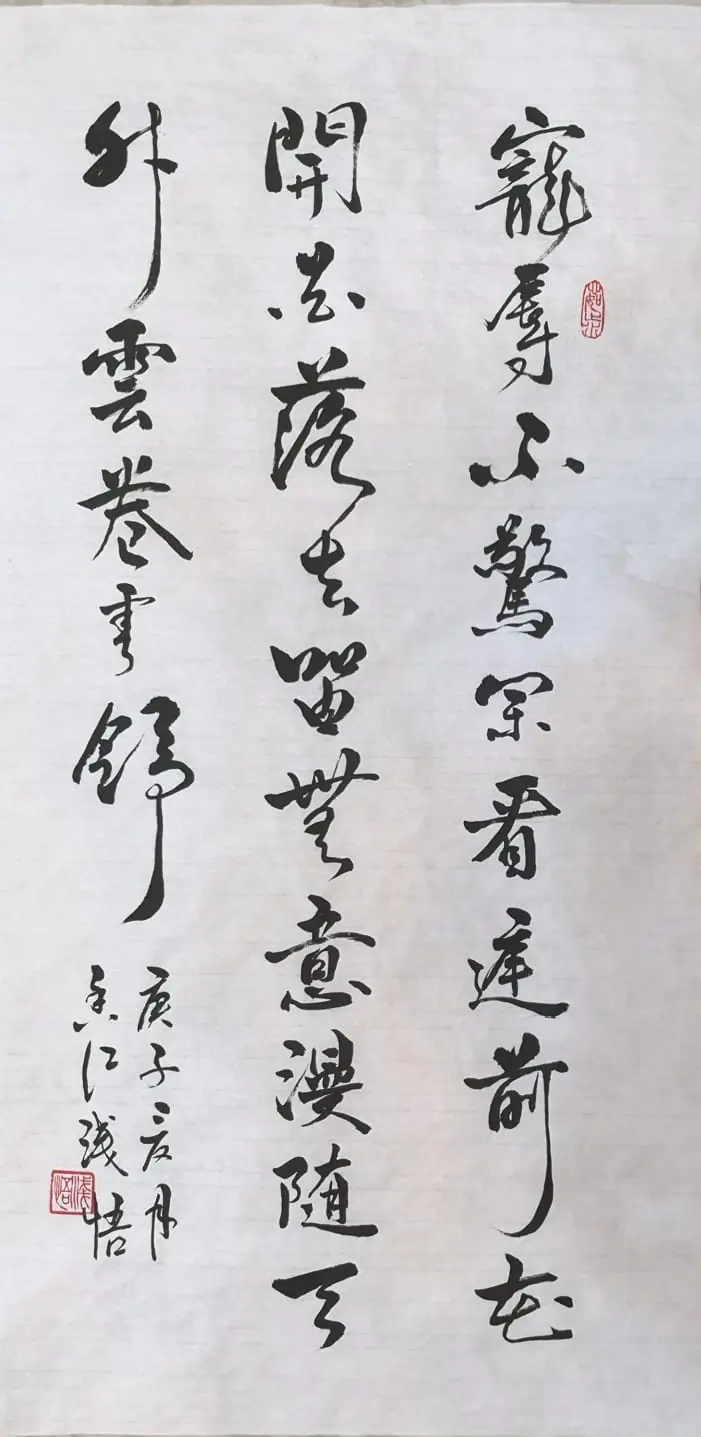 寵辱不驚閑看庭前花
開花落去留無意漫随天
外雲卷雲舒
庚子夏月
江浅悟
浅悟